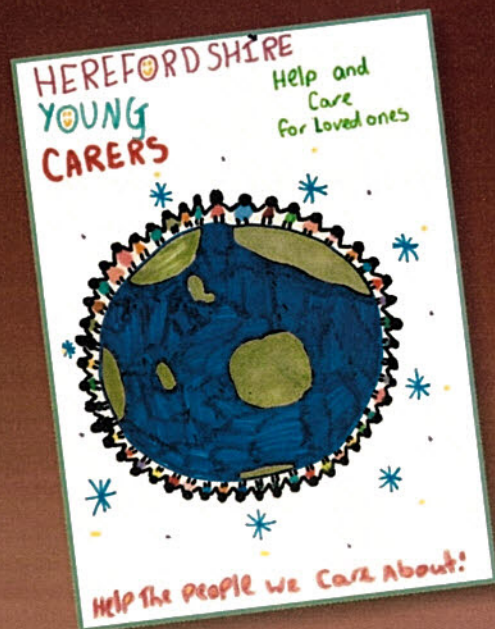 HEREFORDSHIRE
YOUNG
CARERS
Help and
Care
for Loved ones
Help The people we Care About!